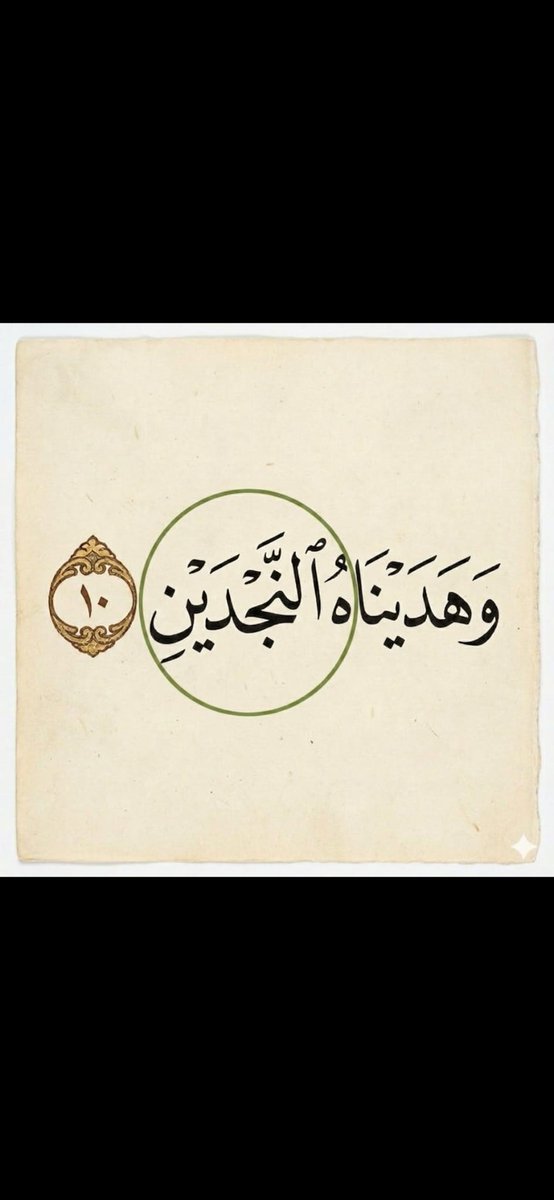 وَهَدَيْنَاهُ ٱلنَّجْدَيْنِ ١٠